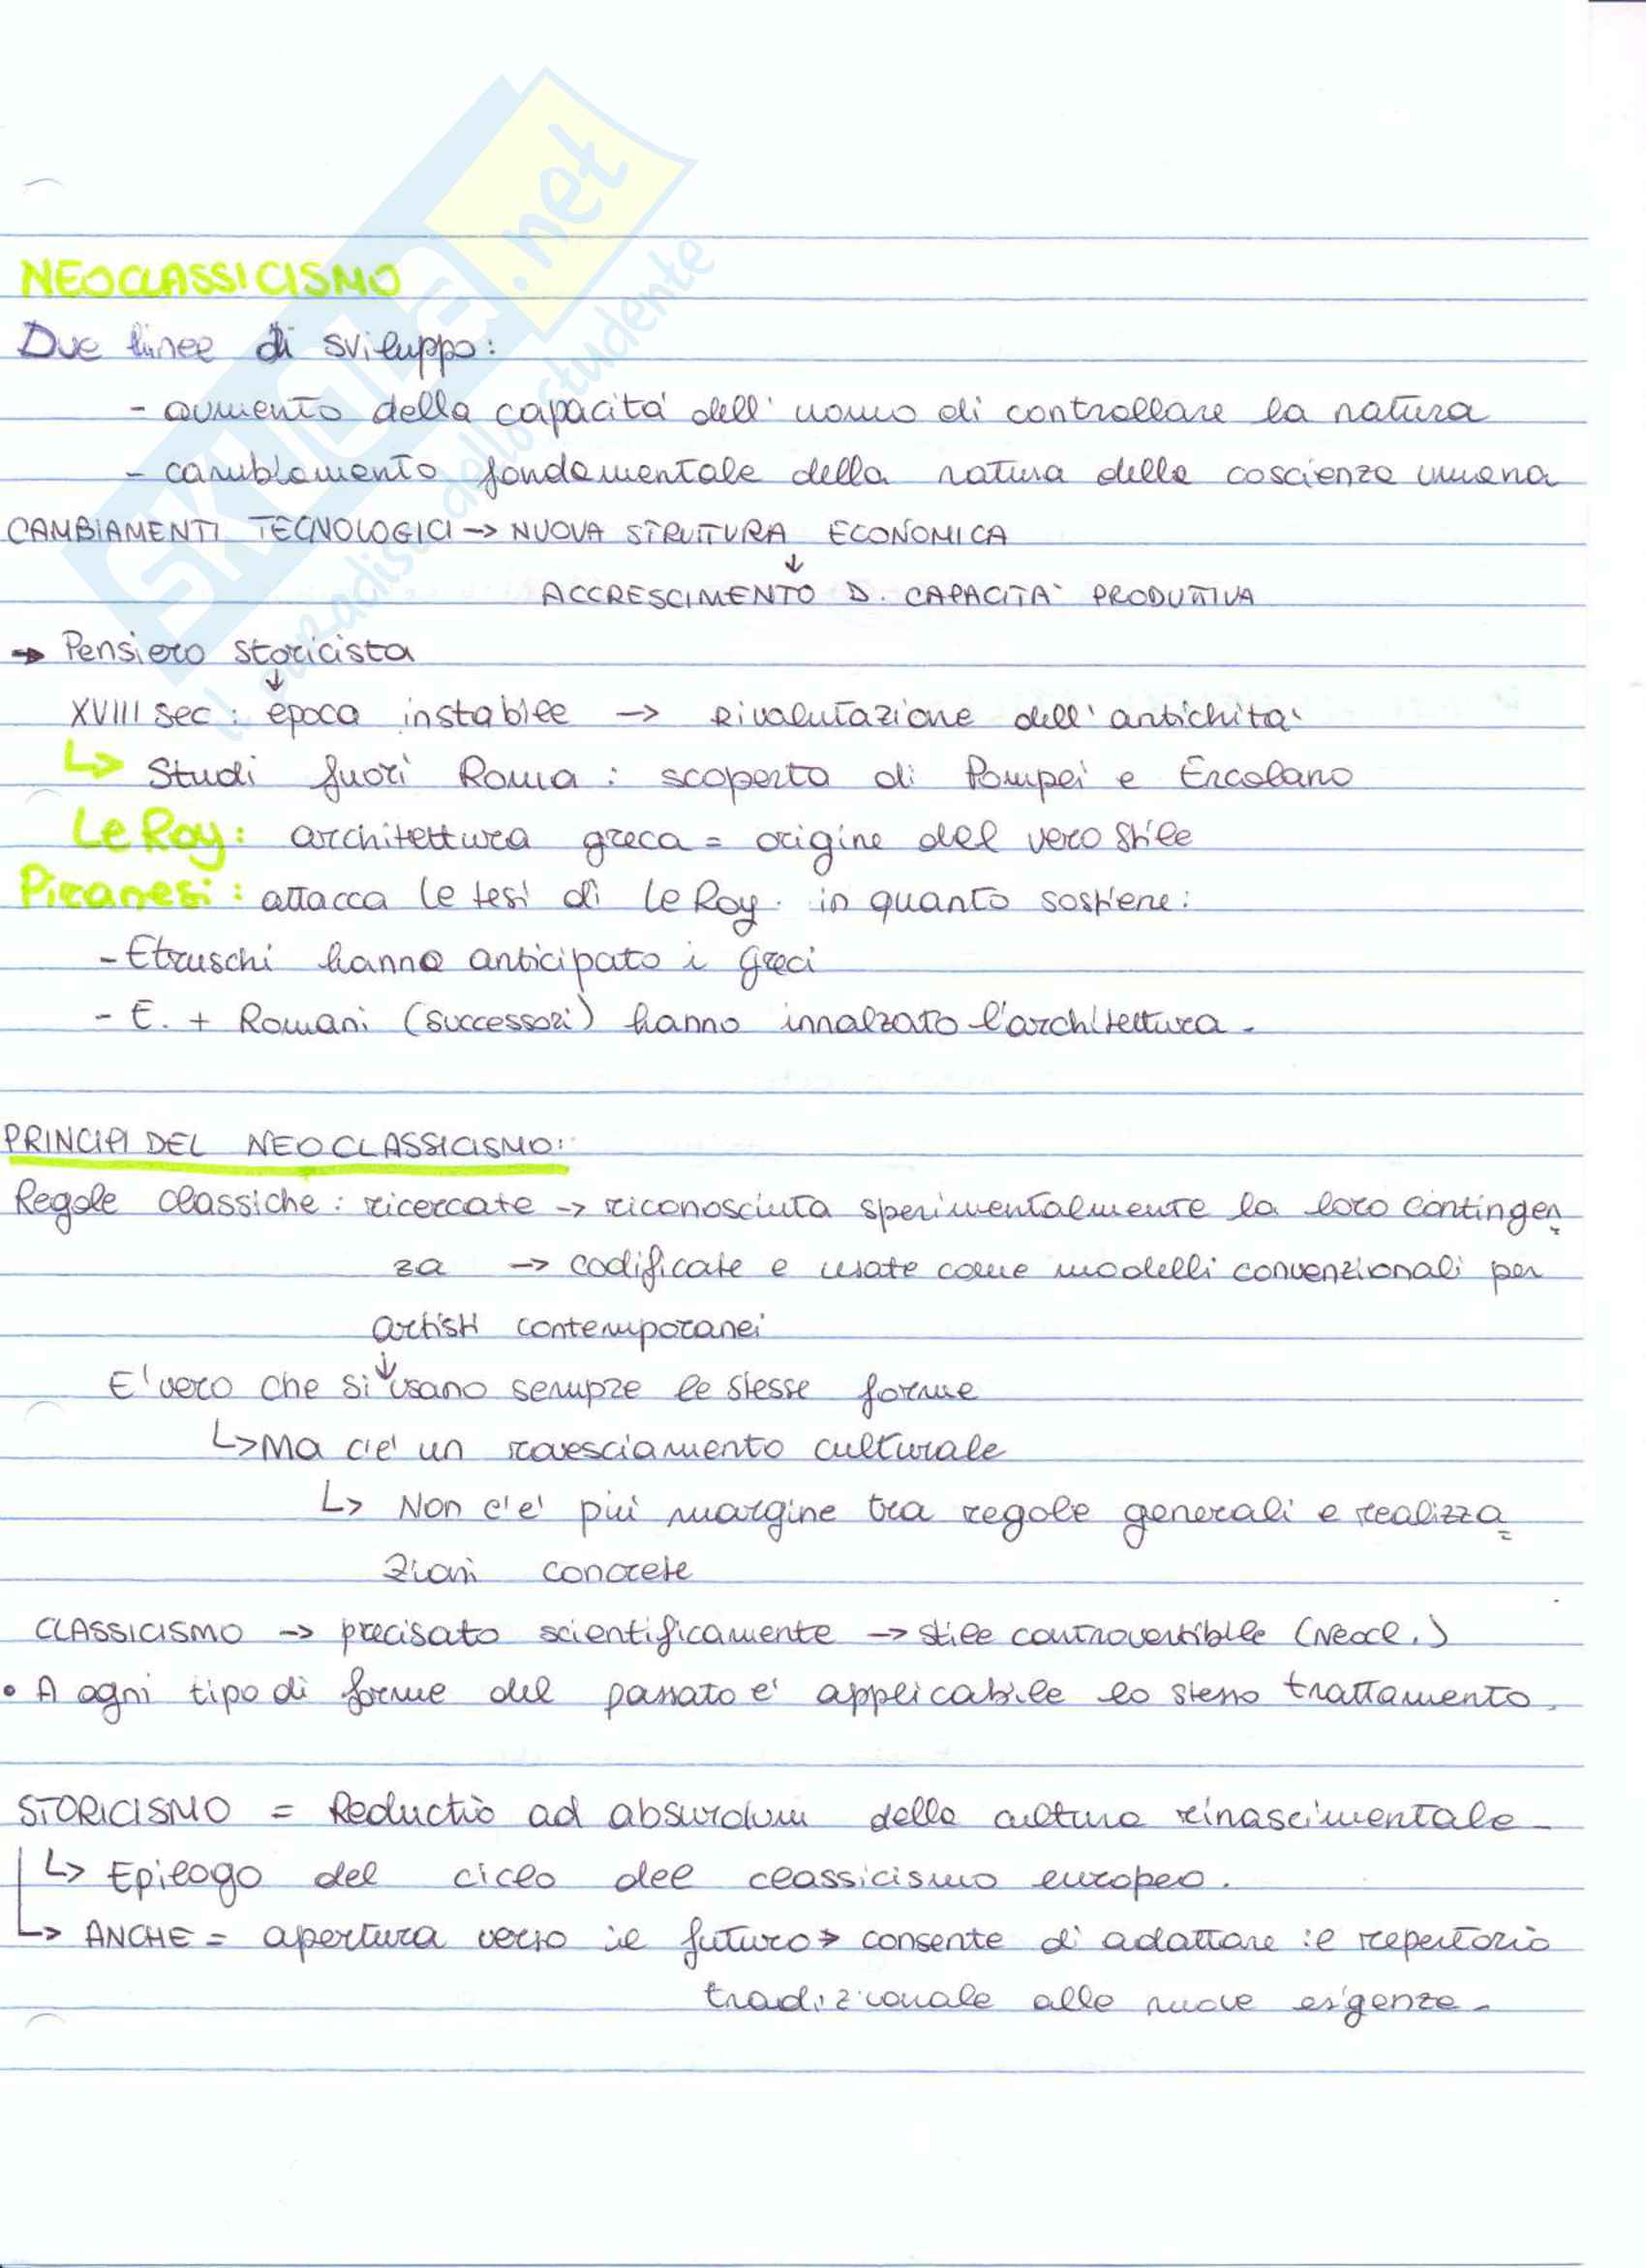 SKUOLA.net
il paradiso dello studente
NEOCLASSICISMO
Due linee di sviluppo:
- aumento della capacità dell'uomo di controllare la natura
- cambiamento fondamentale della natura della coscienza umana
CAMBIAMENTI TECNOLOGICI -> NUOVA STRUTTURA ECONOMICA
↓
ACCRESCIMENTO D. CAPACITA' PRODUTTIVA
→ Pensiero storicista
↓
XVIII sec: epoca instabile -> Rivalutazione dell'antichita'
↳ Studi fuori Roma: scoperta di Pompei e Ercolano
Le Roy: architettura greca = origine del vero stile
Piranesi: attacca le tesi di Le Roy in quanto sostiene:
- Etruschi hanno anticipato i greci
- E. + Romani (successori) hanno innalzato l'architettura.
PRINCIPI DEL NEOCLASSICISMO:
Regole classiche: ricercate -> riconosciuta sperimentalmente la loro contingen
za -> codificate e usate come modelli convenzionali per
artisti contemporanei
↓
E' vero che si usano sempre le stesse forme
↳ Ma c'e' un rovesciamento culturale
↳ Non c'e' più margine tra regole generali e realizza=
zioni concrete
CLASSICISMO -> precisato scientificamente -> stile controvertibile (Neocl.)
• A ogni tipo di forme del passato e' applicabile lo stesso trattamento.
STORICISMO = Reductio ad absurdum della cultura rinascimentale -
↳ Epilogo del ciclo del classicismo europeo.
↳ ANCHE = apertura verso il futuro → consente di adattare il repertorio
tradizionale alle nuove esigenze.